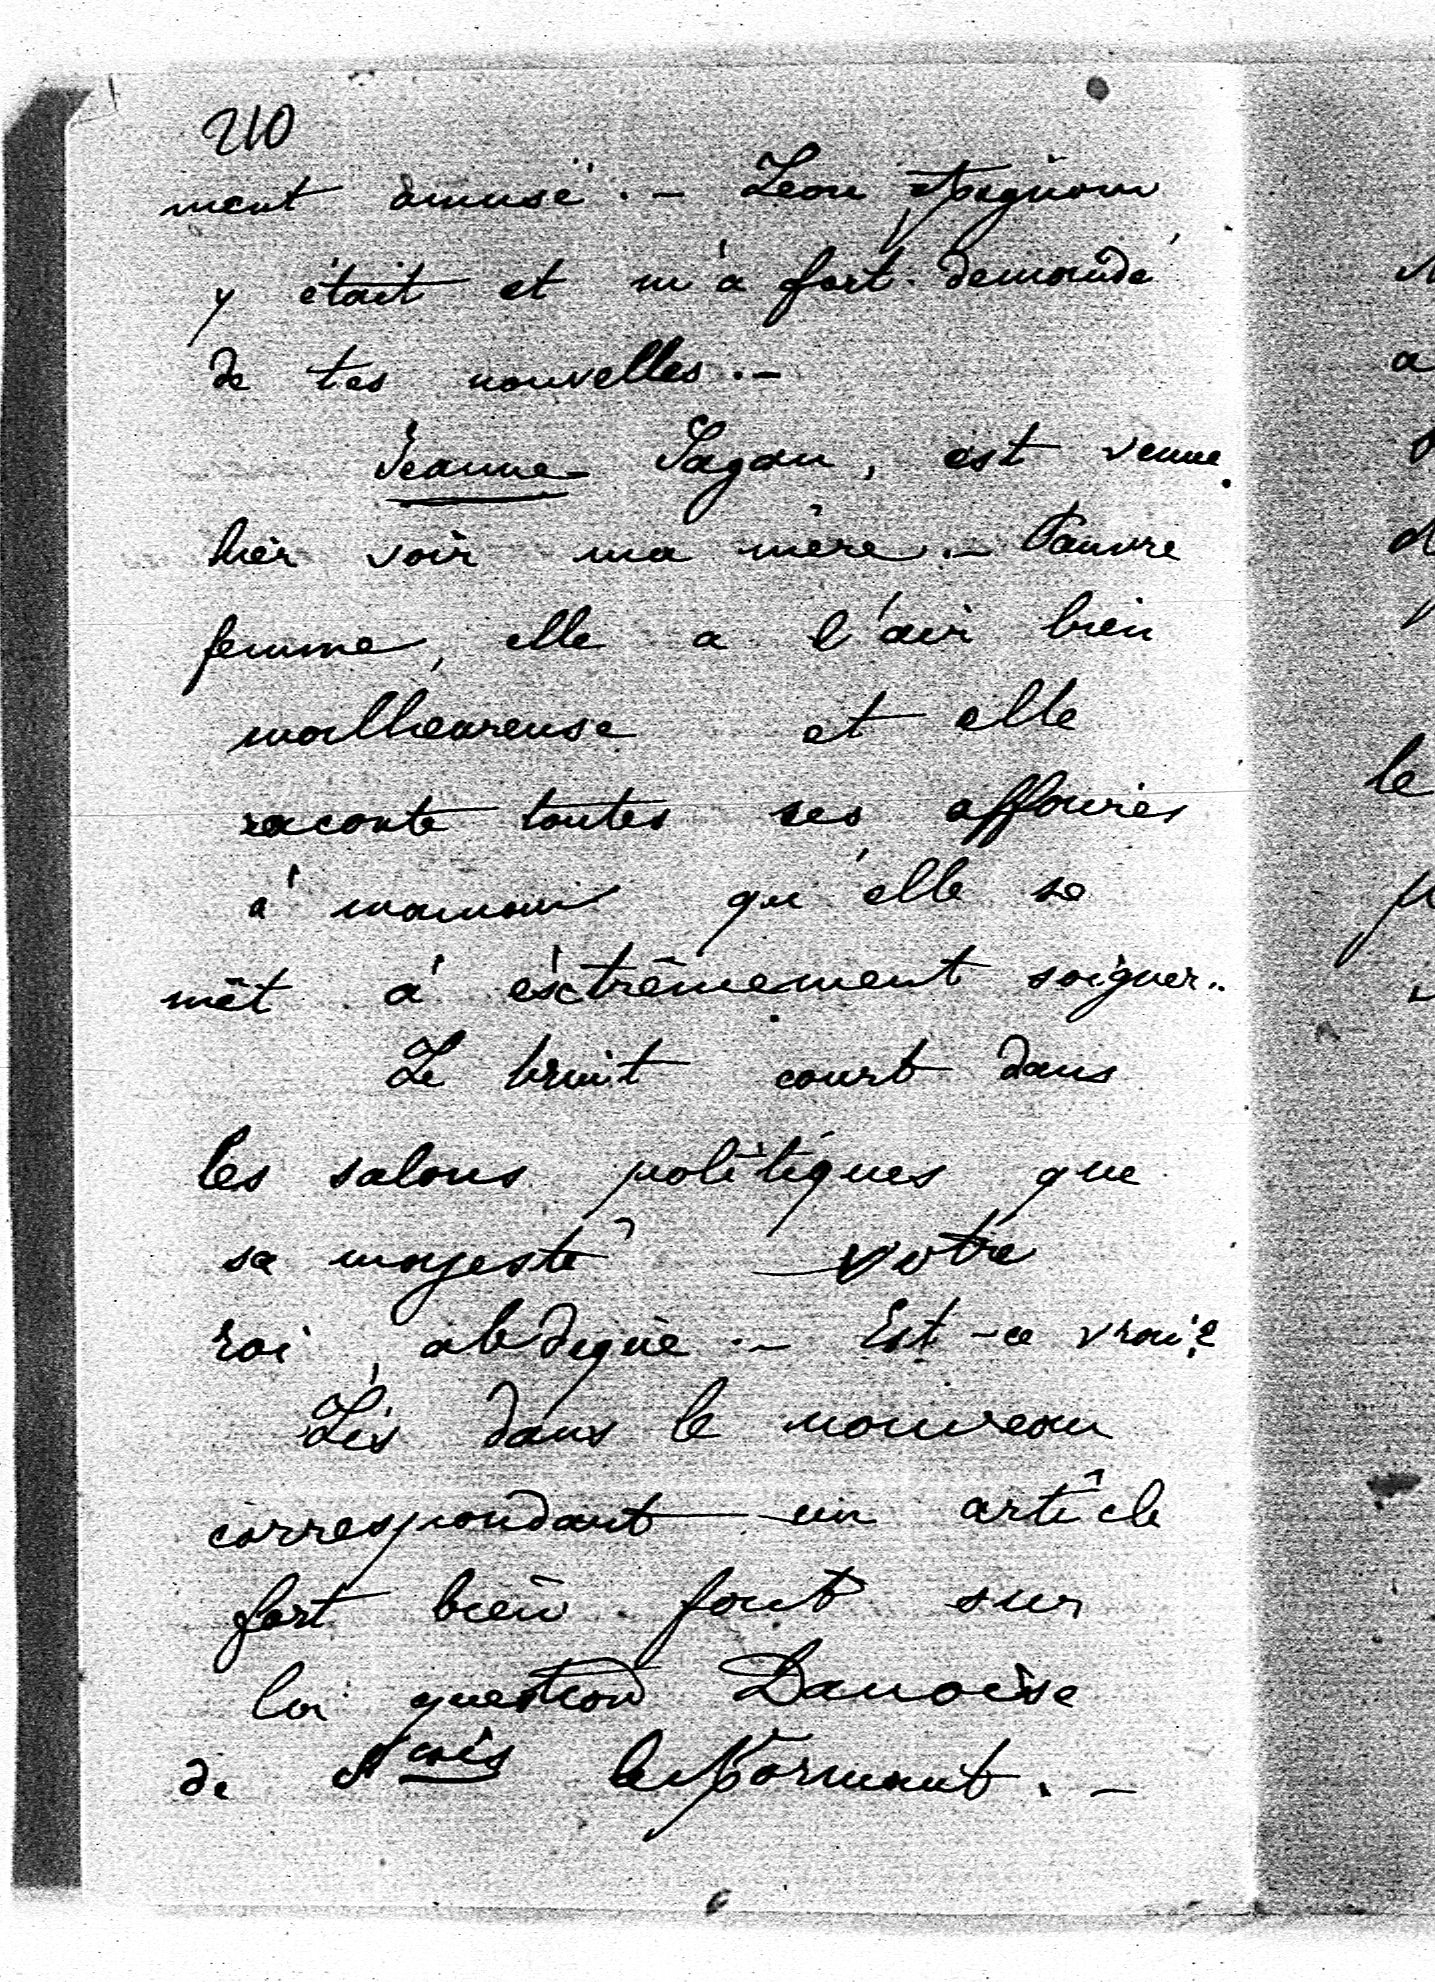 210
ment amusé. - Léon
y était et m'a fort demandé
de tes nouvelles. -
Jeanne Sagan, est venue
hier voir ma mère. - Pauvre
femme, elle a l'air bien
malheureuse et elle
raconte toutes ses affaires
à maman qu'elle se
mêt à éxtrêmement soigner..
Le bruit court dans
les salons politiques que
sa majesté votre
roi, abdique. - Est-ce vrai?
Lis dans le nouveau
correspondant un article
fort bien fait sur
la question Danoise
de le Normant. -